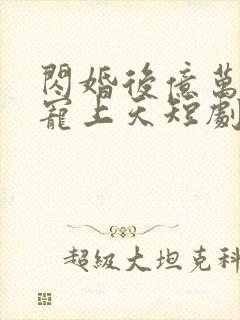 閃婚後億萬
寵上天短劇
超級大坦克科